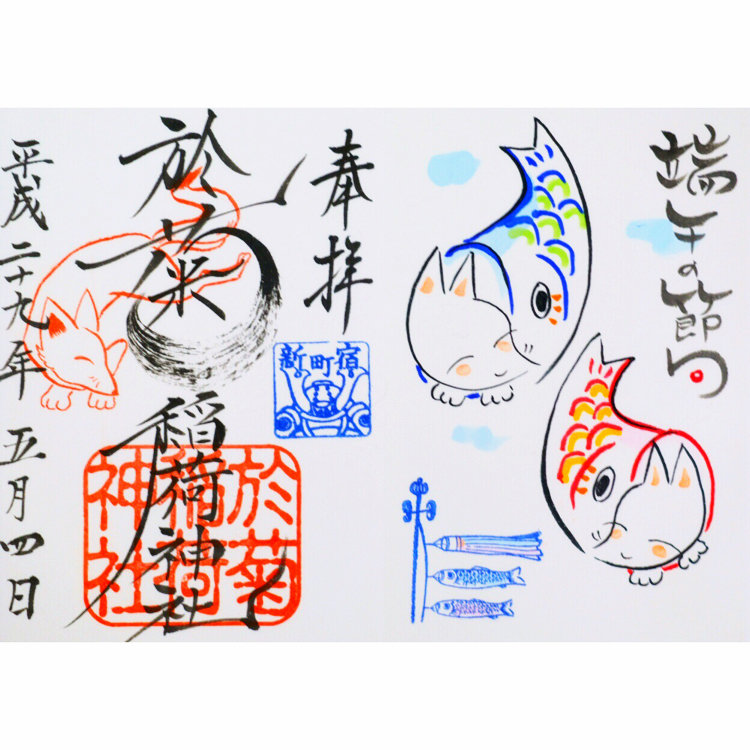 端午の節句
奉拝
新町宿
於菊稲荷神社
於菊
稲荷
神社
平成二十九年 五月四日